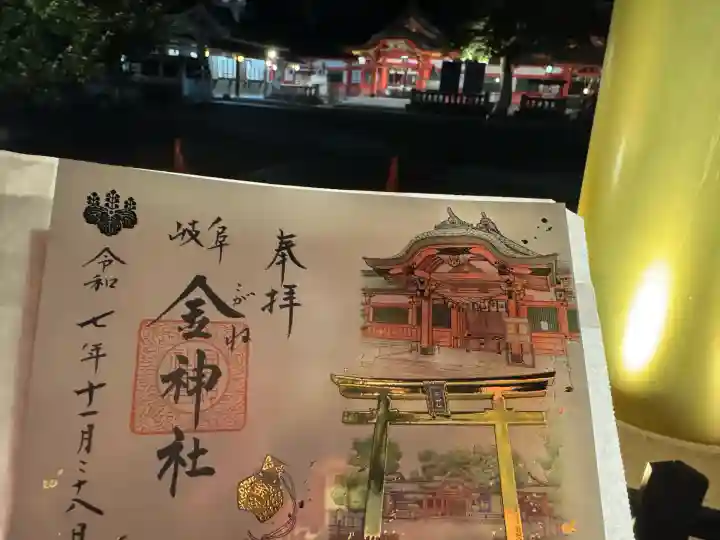 奉拝
岐阜
金神社
こがね
令和七年十一月二十八日